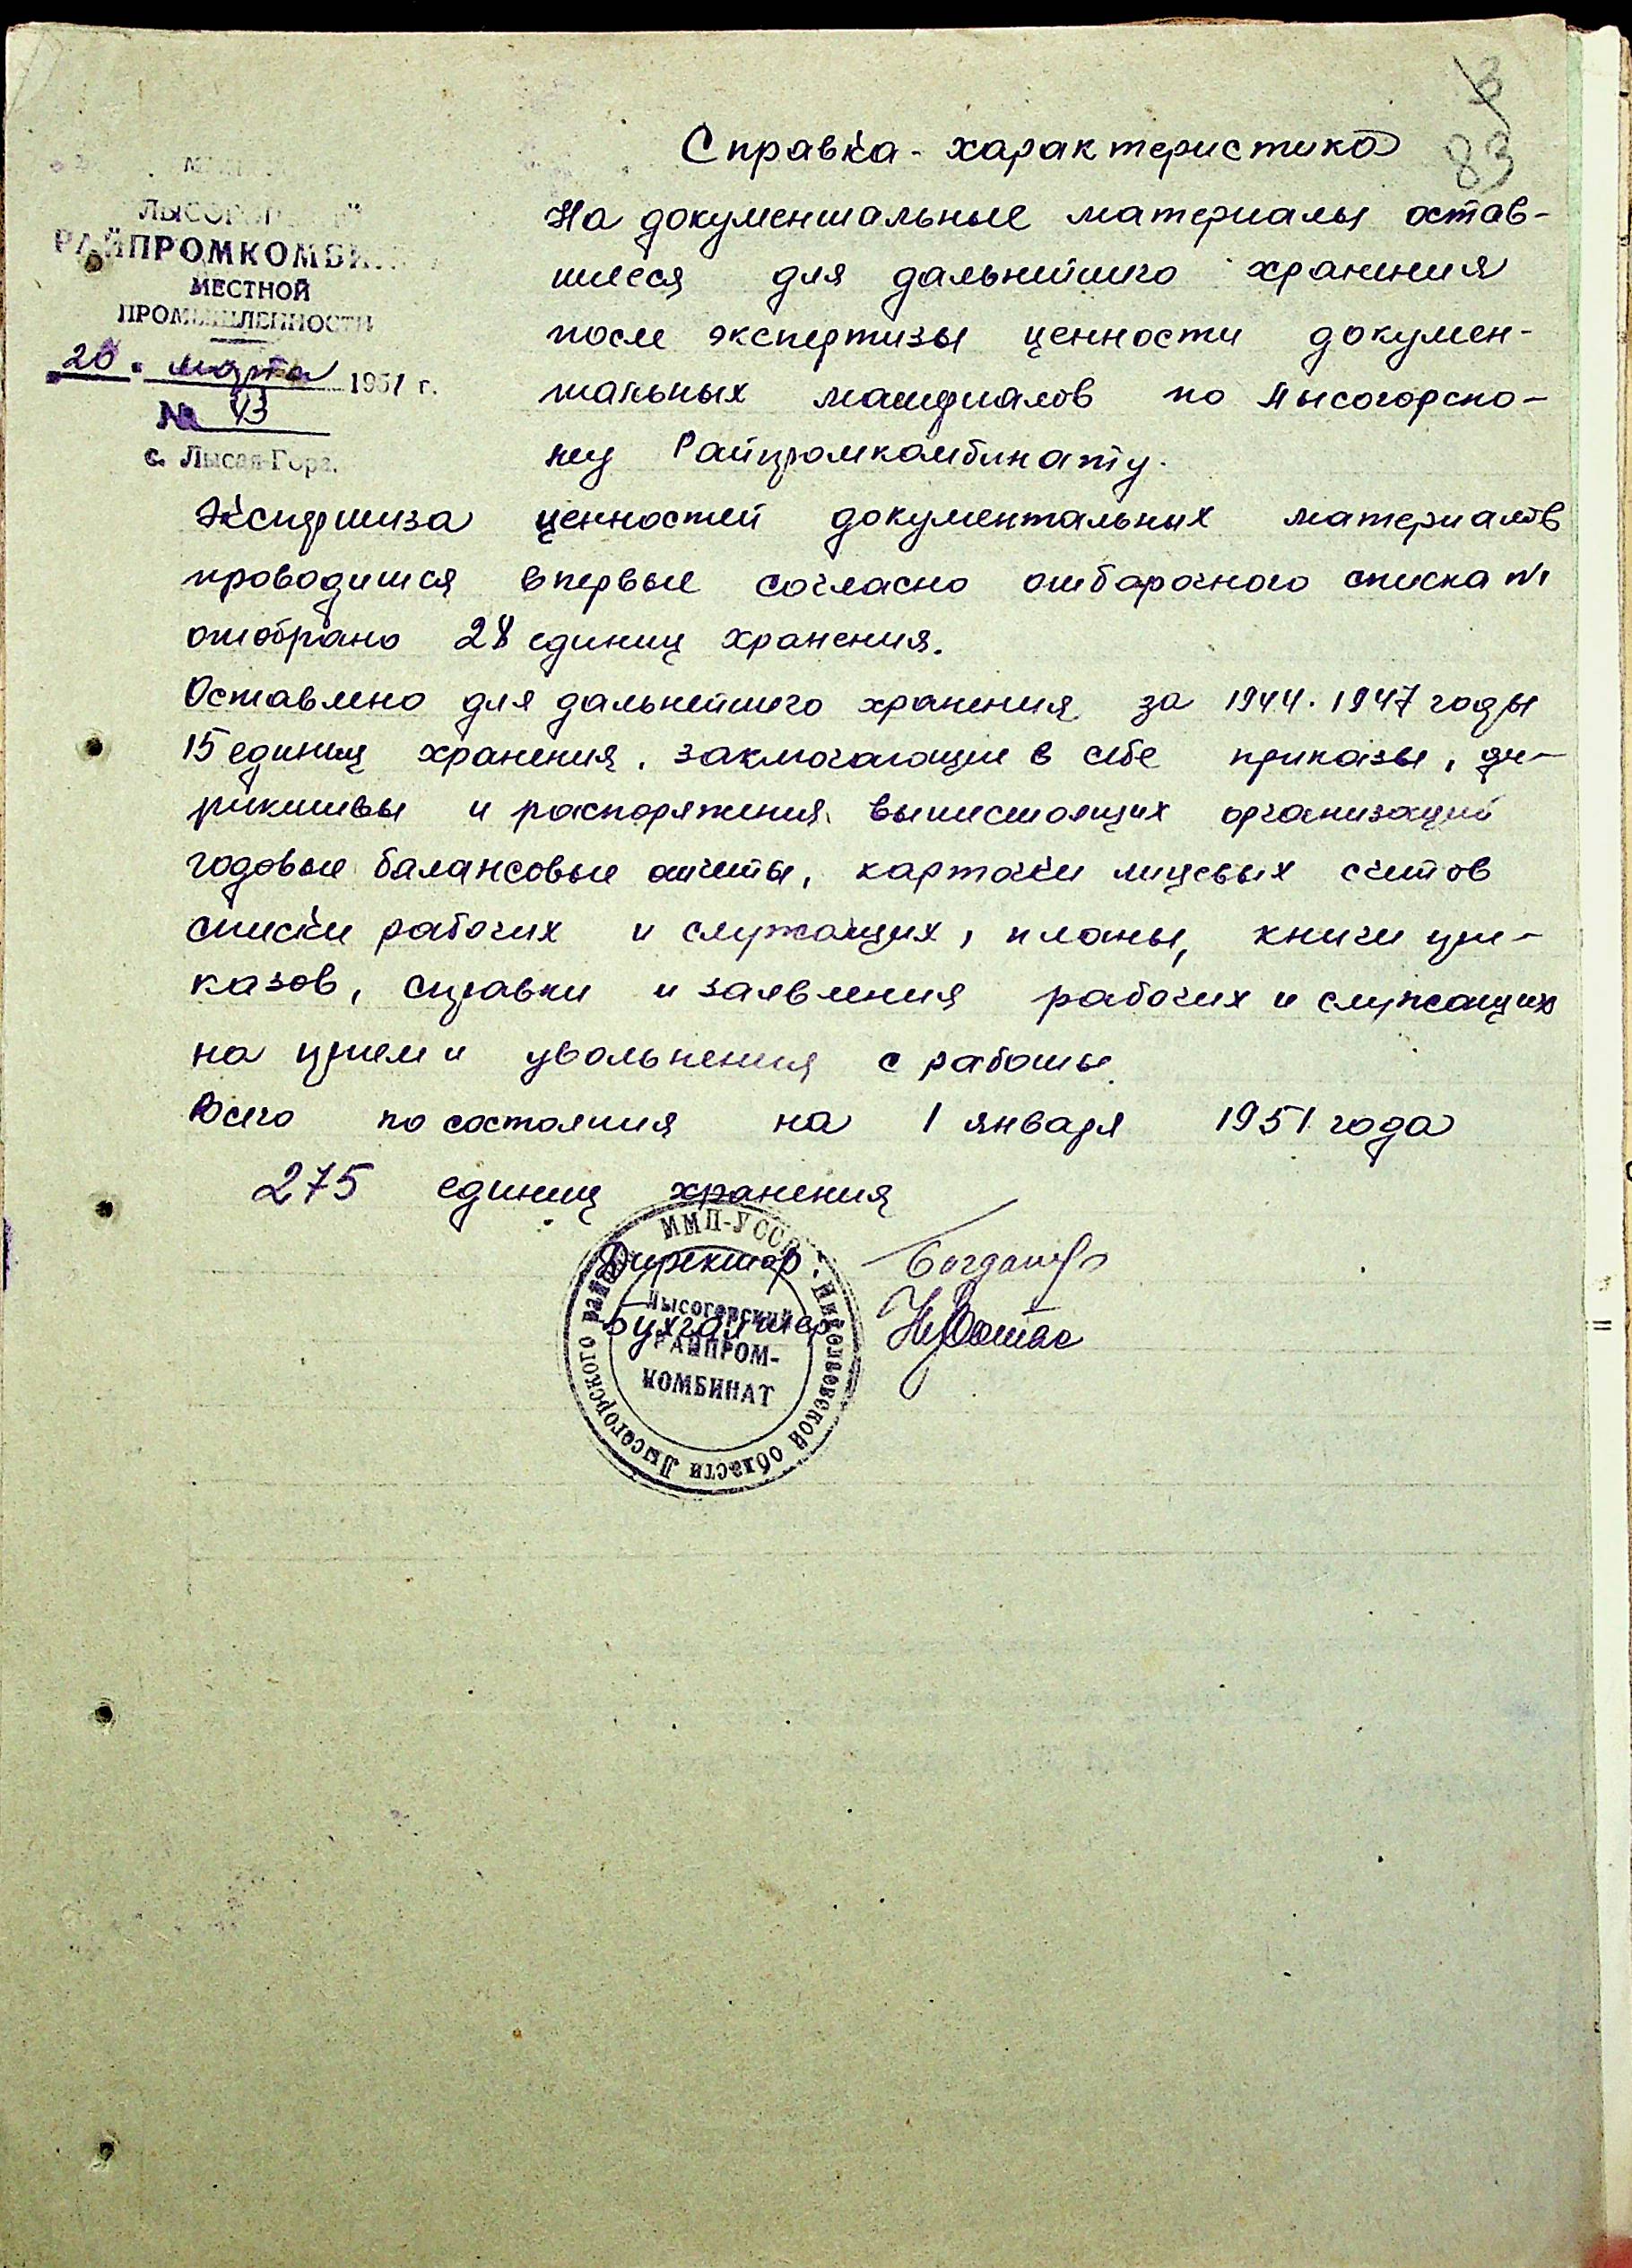 83
Справка - характеристика
На документальные материалы остав-
шиеся для дальнейшего хранения
после экспертизы ценности докумен-
тальных материалов по Лысогорско-
му Райпромкомбинату.
РАЙПРОМКОМБИНАТ
МЕСТНОЙ
ПРОМЫШЛЕННОСТИ
20 марта 1951 г.
№ 43
с. Лысая-Гора.
Экспертиза ценностей документальных материалов
проводится впервые согласно отборочного списка №1
отобрано 28 единиц хранения.
Оставлено для дальнейшего хранения за 1944. 1947 годы
15 единиц хранения, заключающие в себе приказы, ди-
рективы и распоряжения вышестоящих организаций
годовые балансовые отчеты, карточки лицевых счетов
списки рабочих и служащих, планы, книги при-
казов, справки и заявления рабочих и служащих
на прием и увольнения с работы.
Всего по состояния на 1 января 1951 года
275 единиц хранения
Директор
Бухгалтер
ММП-УССР · Николаевской области Лысогорского района
Лысогорский
РАЙПРОМ-
КОМБИНАТ